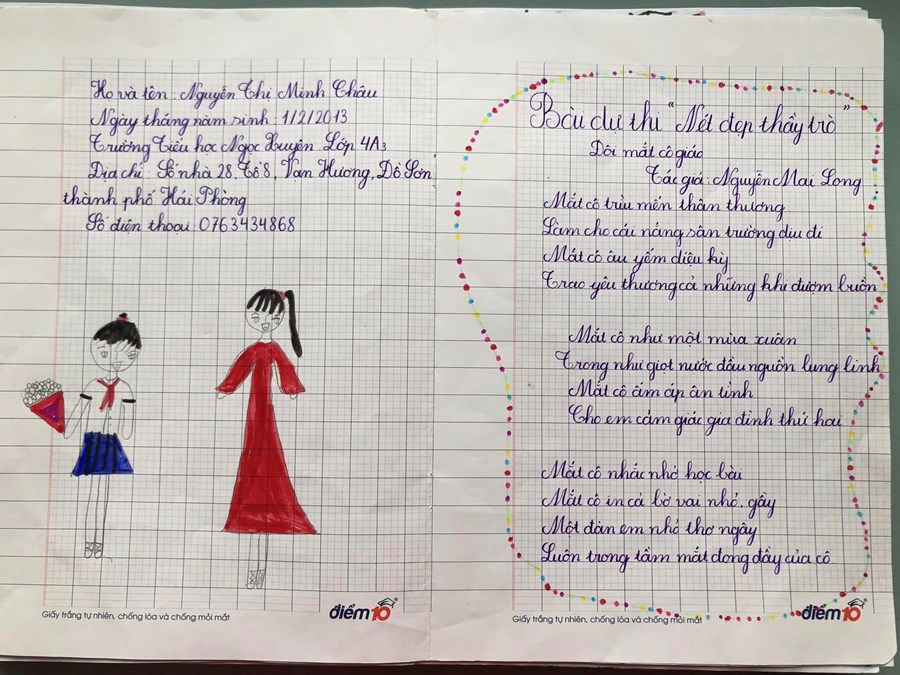 Họ và tên : Nguyễn Thị Minh Châu
Ngày tháng năm sinh : 1/2/2013
Trường Tiểu học Ngọc Xuyên Lớp 4A3
Địa chỉ Số nhà 28, Tổ 8, Vạn Hương, Đồ Sơn
thành phố Hải Phòng
Số điện thoại : 0763434868
Giấy trắng tự nhiên, chống lóa và chống mỏi mắt
điểm 10
Bài dự thi "Nét đẹp thầy trò"
Đôi mắt cô giáo
Tác giả : Nguyễn Mai Long
Mắt cô trìu mến thân thương
Làm cho cái nắng sân trường dịu đi
Mắt cô âu yếm diệu kỳ
Trao yêu thương cả những khi đượm buồn
Mắt cô như một mùa xuân
Trong như giọt nước đầu nguồn lung linh
Mắt cô ấm áp ân tình
Cho em cảm giác gia đình thứ hai
Mắt cô nhắc nhở học bài
Mắt cô in cả bờ vai nhỏ. gầy
Một đàn em nhỏ thơ ngây
Luôn trong tầm mắt dong đầy của cô
Giấy trắng tự nhiên, chống lóa và chống mỏi mắt
điểm 10